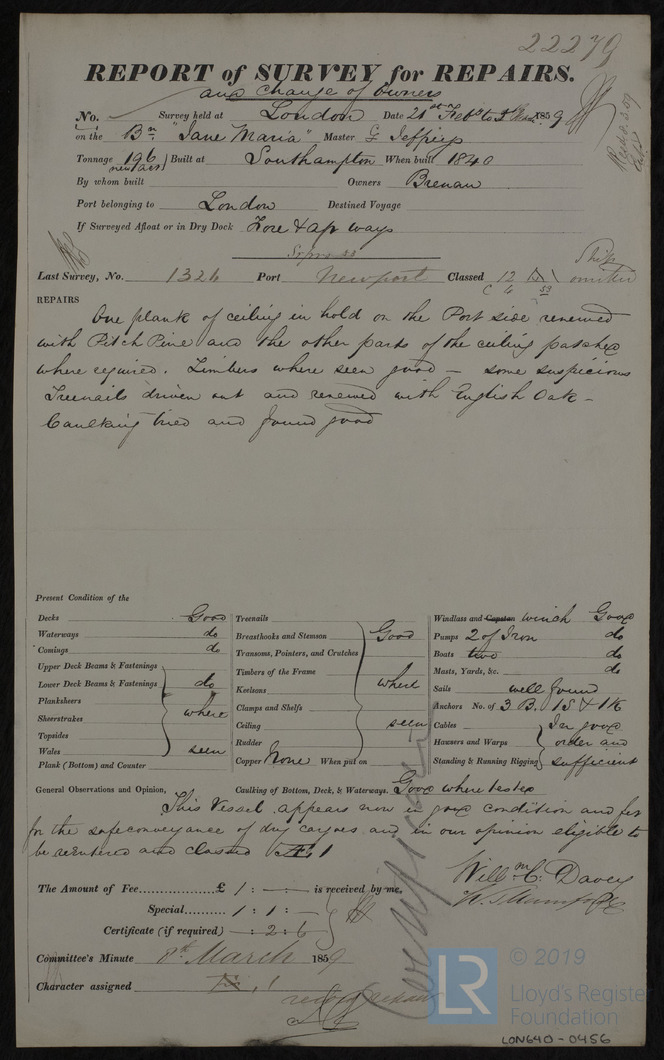 22279
REPORT of SURVEY for REPAIRS.
and change of Owners
No. Survey held at London Date 21st Feby to 1859
on the Bn "Jane Maria" Master G Jeffries
Tonnage 196 Built at Southampton When built 1840
By whom built Owners Brenan
Port belonging to London Destined Voyage
If Surveyed Afloat or in Dry Dock Fore & aft ways
Last Survey, No. 1326 Port Newport Classed 12
REPAIRS
One plank of ceiling in hold on the Port side renewed
with Pitch Pine and the other parts of the ceiling patched
where required. Limbers where seen good — some suspicious
Treenails driven out and renewed with English Oak –
Caulking tried and found good
Present Condition of the
Decks Good
Waterways do
Comings do
Upper Deck Beams & Fastenings
Lower Deck Beams & Fastenings do
Planksheers where
Sheerstrakes
Topsides
Wales seen
Plank (Bottom) and Counter
Treenails
Breasthooks and Stemson Good
Transoms, Pointers, and Crutches
Timbers of the Frame
Keelsons where
Clamps and Shelfs
Ceiling seen
Rudder
Copper None When put on
Windlass and Capstan winch Good
Pumps 2 of Iron do
Boats two do
Masts, Yards, &c. do
Sails well found
Anchors No. of 3 B. 1 S & 1 K
Cables In good
Hawsers and Warps order and
Standing & Running Rigging sufficient
General Observations and Opinion, Caulking of Bottom, Deck, & Waterways. Good where tested
This Vessel appears now in good condition and fit
for the safe conveyance of dry cargoes and in our opinion eligible to
be reentered and classed Æ 1
Willm C. Davey
The Amount of Fee £ 1 : – : – is received by me,
Special 1 : 1 : –
Certificate (if required) – : 2 : 6
Committee's Minute 8th March 1859
Character assigned
© 2019
LR
Lloyd's Register
Foundation
LON640-0456